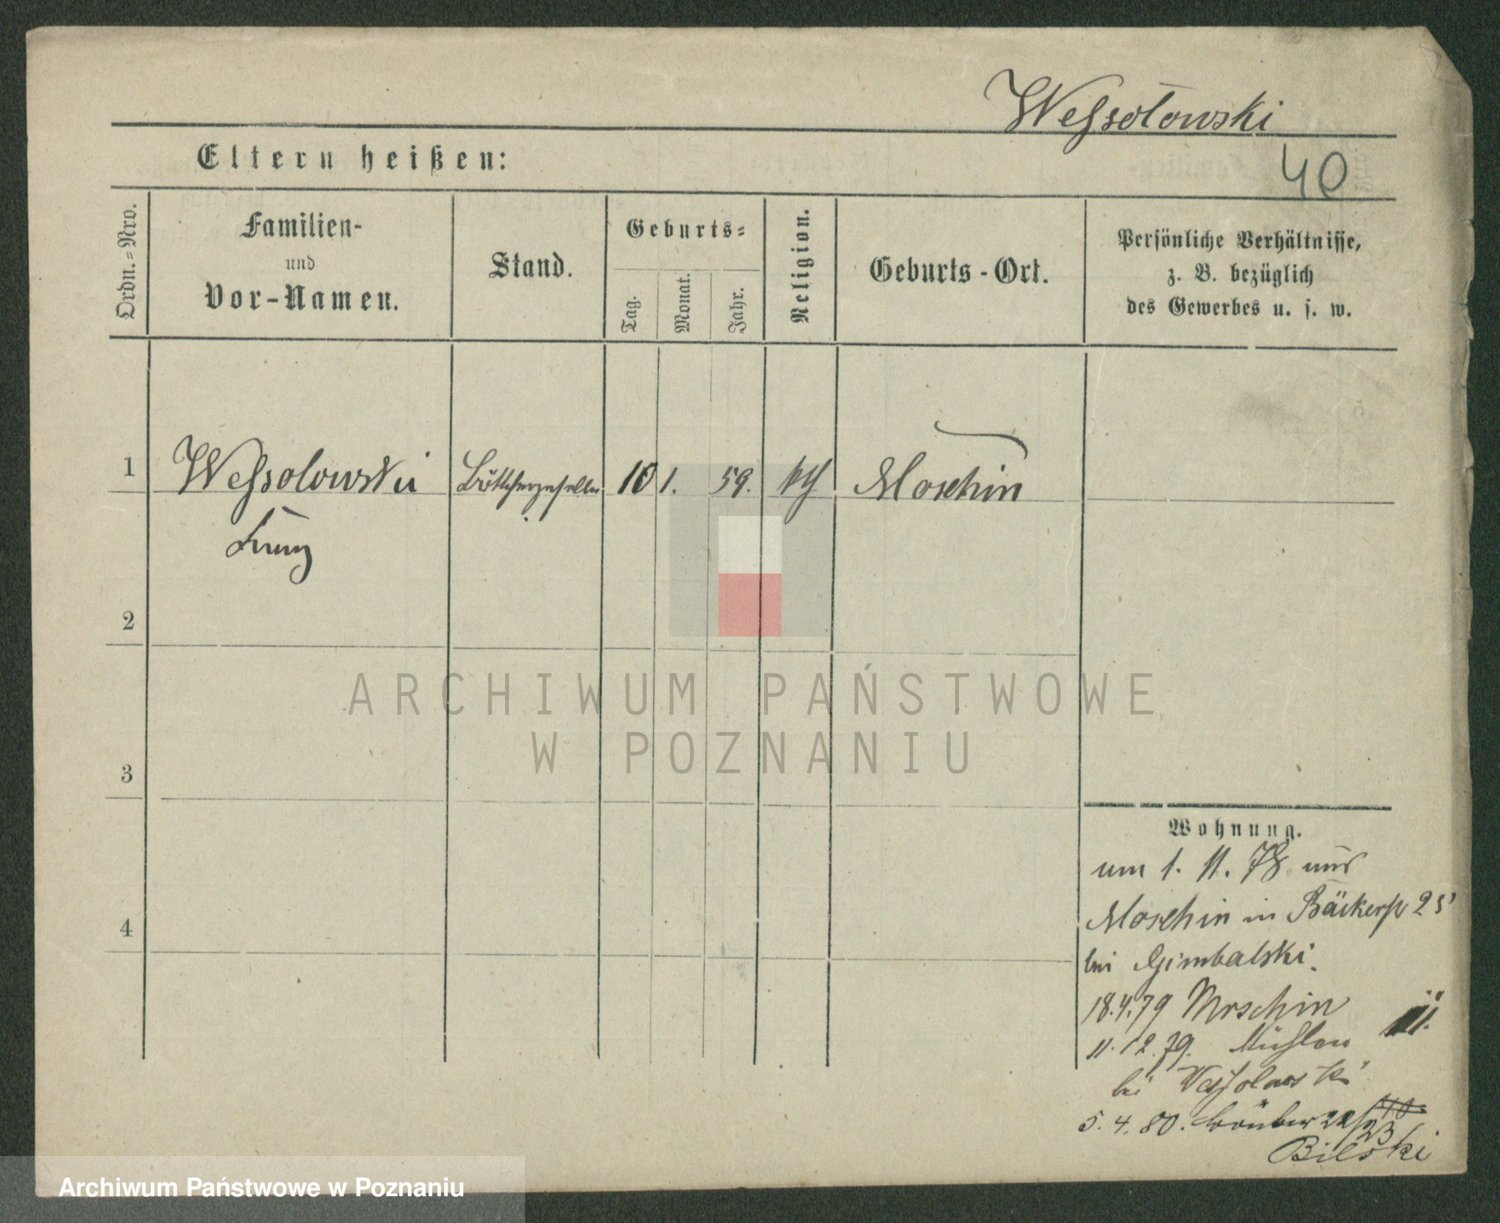 Weßolowski
40
Eltern heißen:
Ordn.-Nro.
Familien-
und
Vor-Namen.
Stand.
Geburts-
Tag.
Monat.
Jahr.
Religion.
Geburts-Ort.
Persönliche Verhältnisse,
z. B. bezüglich
des Gewerbes u. s. w.
1 Weßolowski Böttchergeselle 10 1. 59. kth Moschin
Franz
2
3
4
ARCHIWUM PAŃSTWOWE
W POZNANIU
Wohnung.
am 1. 11. 78 aus
Moschin in Bäckerstr 25
bei Gimbalski.
18.4.79 Moschin
11. 12. 79. Mühlen 11.
bei Weßolowski
5. 4. 80. 22/23
Bilski
Archiwum Państwowe w Poznaniu